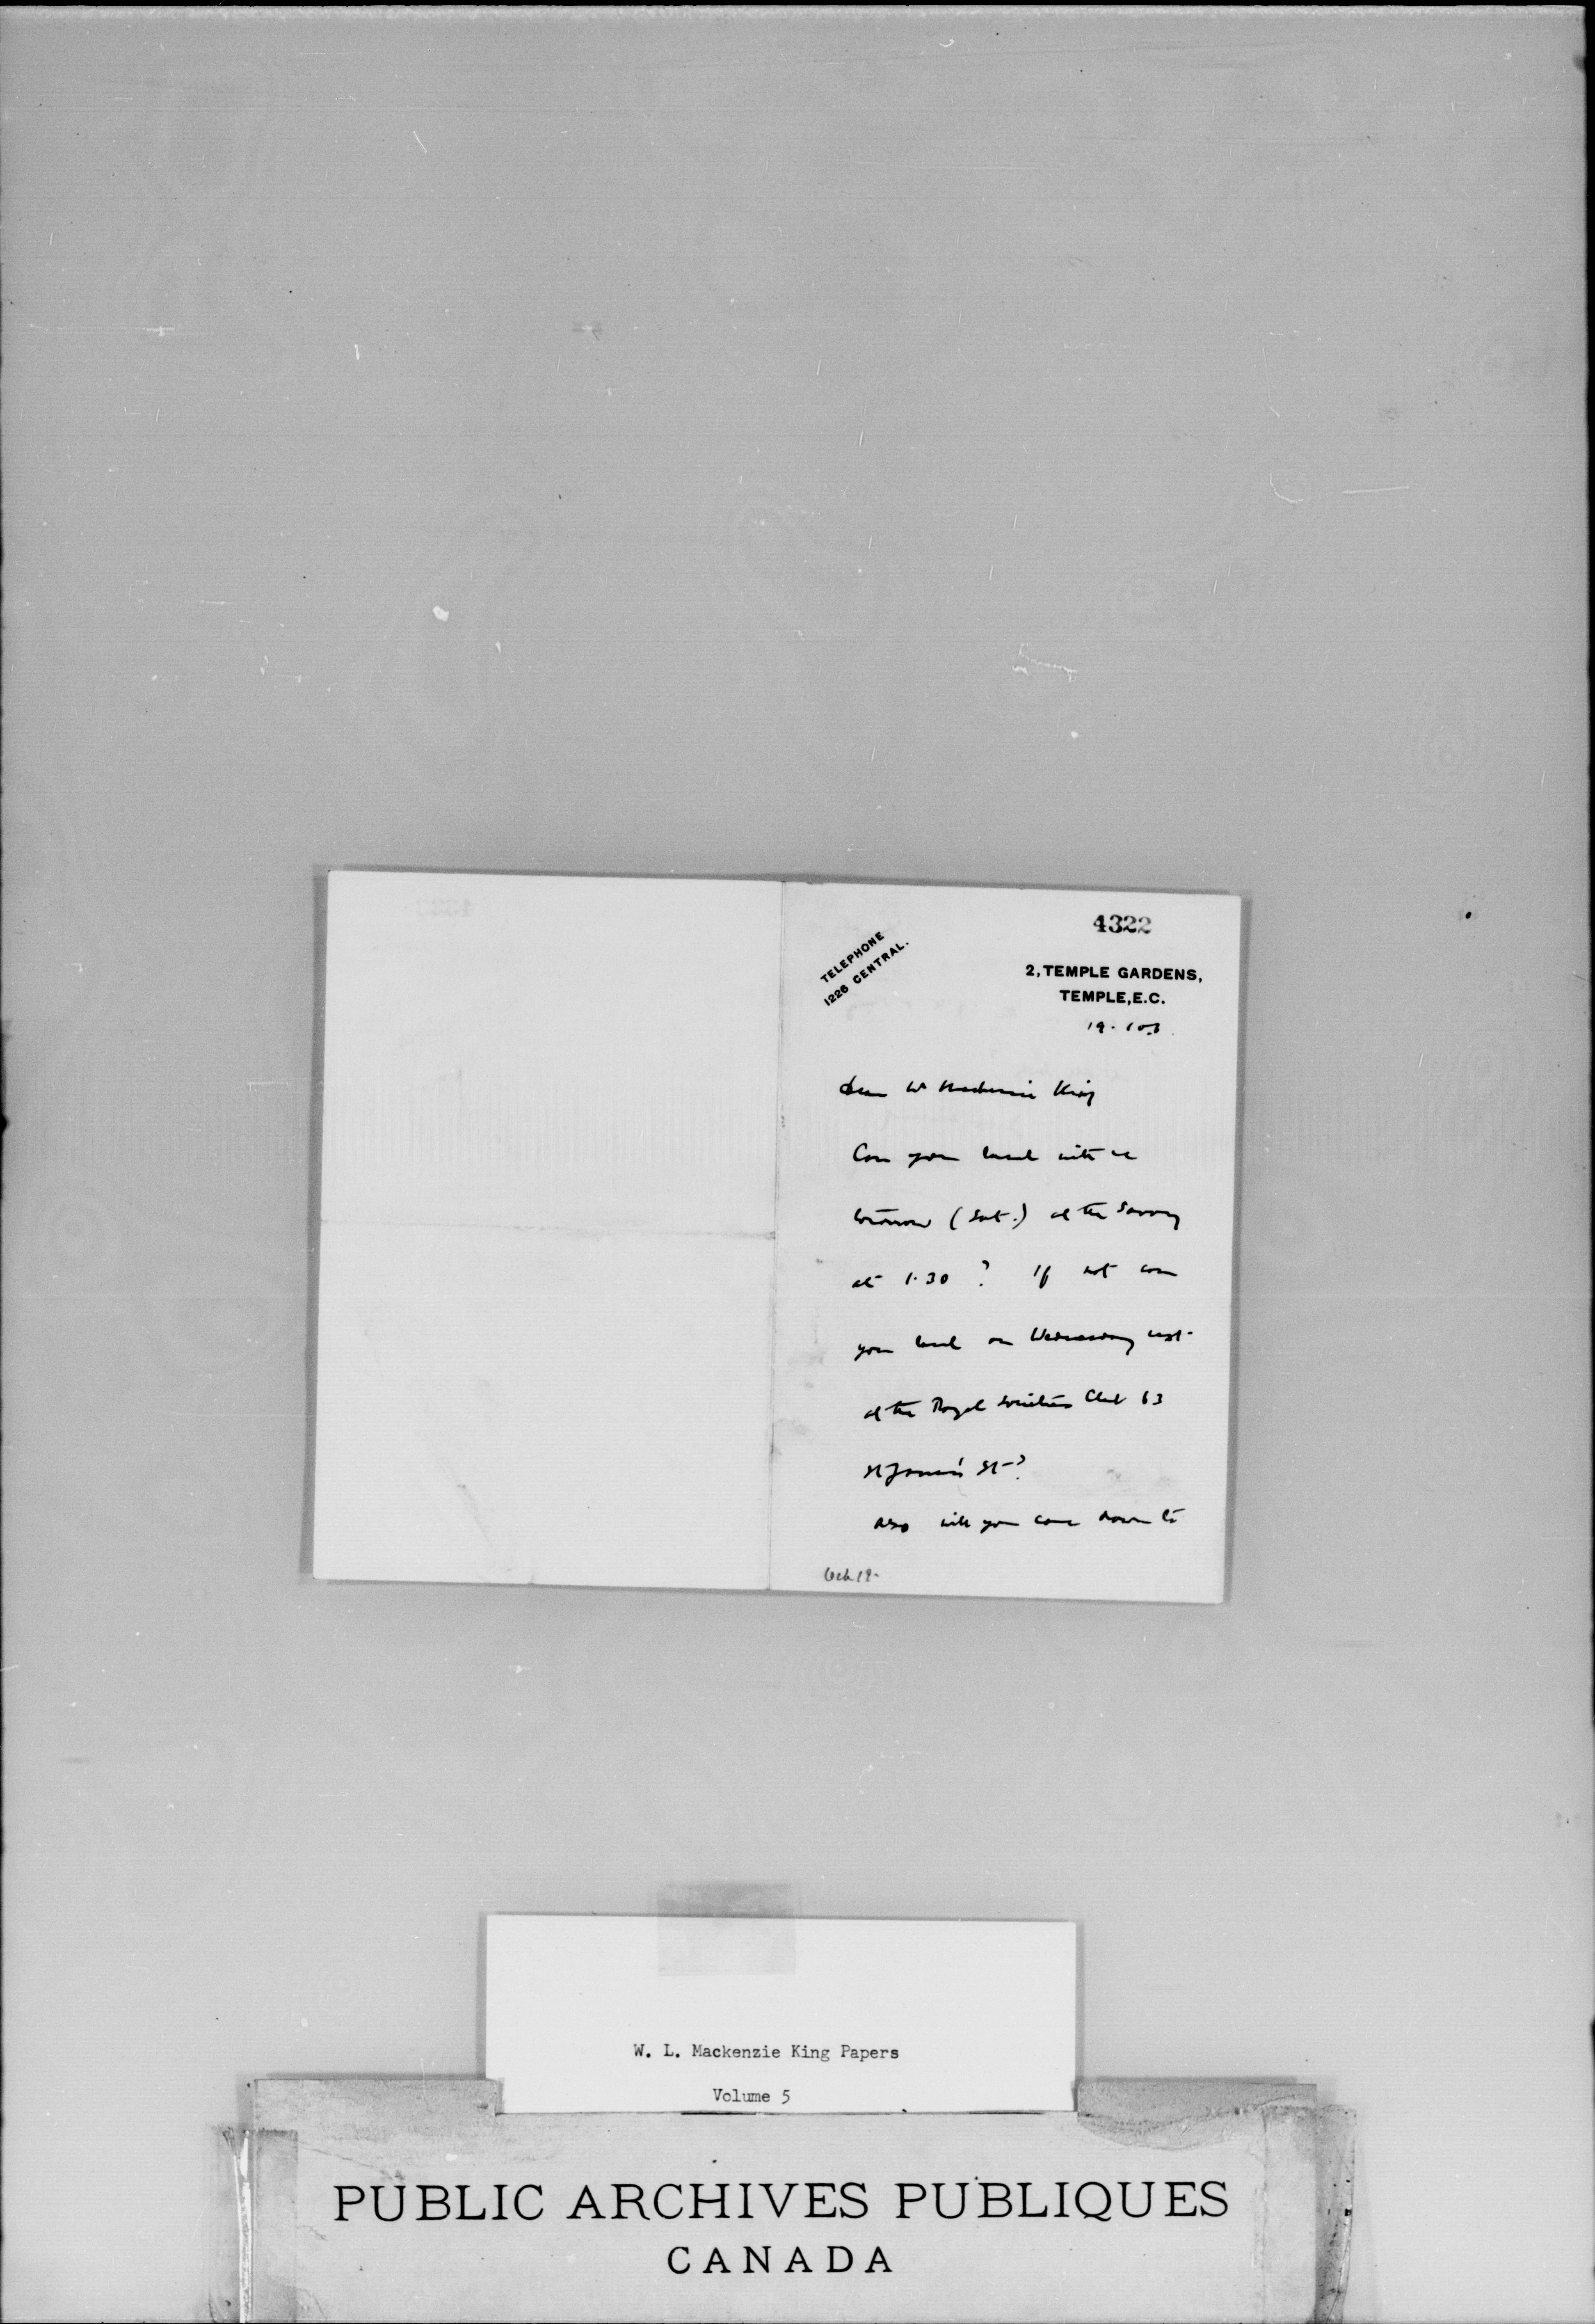 4322
TELEPHONE
1226 CENTRAL.
2, TEMPLE GARDENS,
TEMPLE, E.C.
19.10.
Dear Mr Mackenzie King
Can you lunch with me
tomorrow (Sat.) at the Savoy
at 1.30 ? If not can
you lunch on Wednesday next
at the Royal Societies Club 63
St James's St ?
Also will you come down to
Oct 19
W. L. Mackenzie King Papers
Volume 5
PUBLIC ARCHIVES PUBLIQUES
CANADA